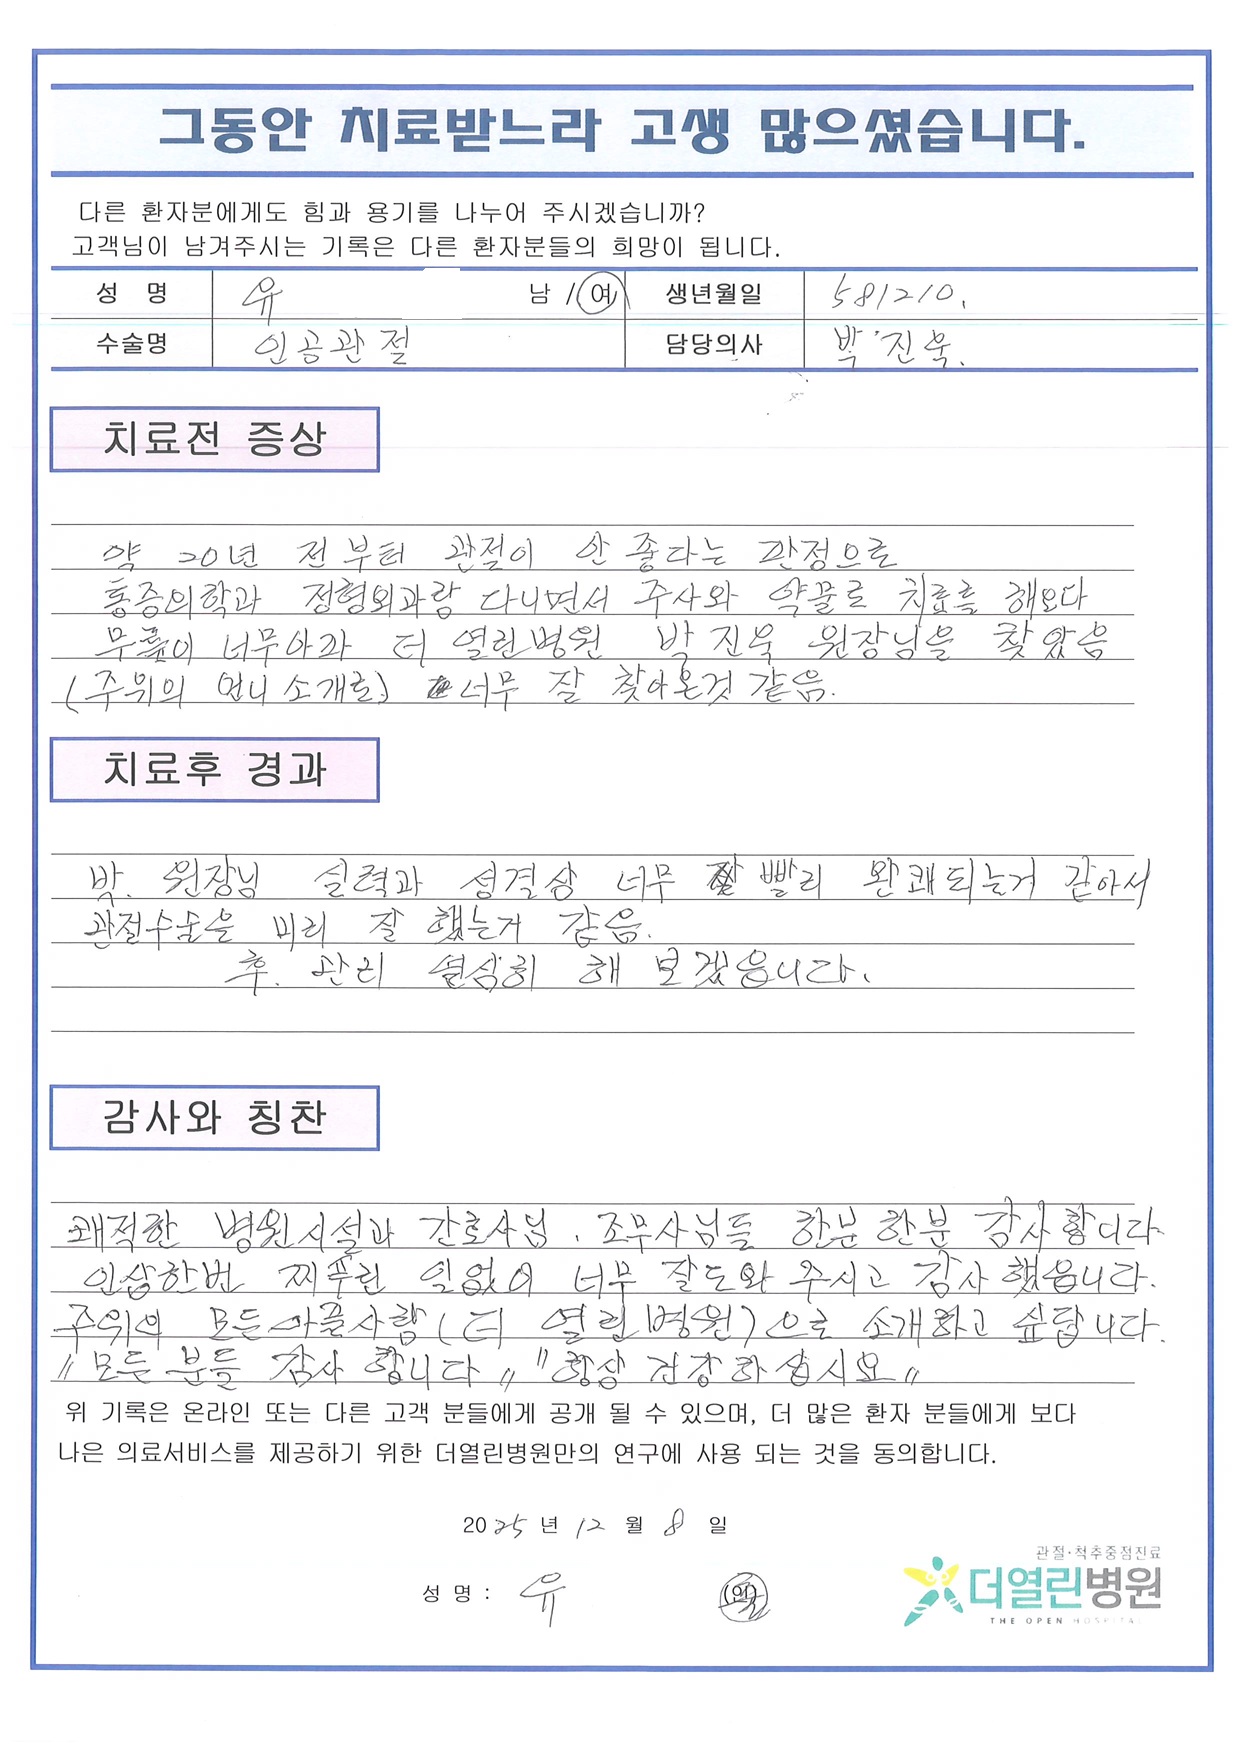 그동안 치료받느라 고생 많으셨습니다.
다른 환자분에게도 힘과 용기를 나누어 주시겠습니까?
고객님이 남겨주시는 기록은 다른 환자분들의 희망이 됩니다.
성 명 유 남 / 여 생년월일 581210.
수술명 인공관절 담당의사 박진욱.
치료전 증상
약 20년 전부터 관절이 안 좋다는 판정으로
통증의학과 정형외과랑 다니면서 주사와 약끌로 치료를 해오다
무릎이 너무아파 더 열린병원 박진욱 원장님을 찾았음
(주위의 언니소개로) 너무 잘 찾아온것 같음.
치료후 경과
박. 원장님 실력과 성결상 너무 빨리 완쾌되는거 같아서
관절수술을 미리 잘 했는거 같음.
후. 관리 열심히 해 보겠읍니다.
감사와 칭찬
쾌적한 병원시설과 간호사님. 조무사님들 한분한분 감사합니다
인상한번 찌푸린 일없이 너무 잘도와 주시고 감사했읍니다.
주위의 모든아픈사람(더 열린병원)으로 소개하고 싶답니다.
"모든 분들 감사 합니다" "항상 건강하십시요"
위 기록은 온라인 또는 다른 고객 분들에게 공개 될 수 있으며, 더 많은 환자 분들에게 보다
나은 의료서비스를 제공하기 위한 더열린병원만의 연구에 사용 되는 것을 동의합니다.
2025 년 12 월 8 일
성 명 : 유 (인)
관절·척추중점진료
더열린병원
THE OPEN HOSPITAL